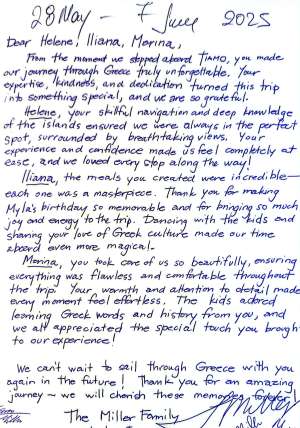 28 May - 7 June 2025
Dear Helene, Iliana, Merina,
From the moment we stepped aboard TIAMO, you made
our journey through Greece truly unforgettable. Your
expertise, kindness, and dedication turned this trip
into something special, and we are so grateful.
Helene, your skillful navigation and deep knowledge
of the islands ensured we were always in the perfect
spot, surrounded by breathtaking views. Your
experience and confidence made us feel completely at
ease, and we loved every stop along the way!
Iliana, the meals you created were incredible—
each one was a masterpiece. Thank you for making
Myla's birthday so memorable and for bringing so much
joy and energy to the trip. Dancing with the kids and
sharing your love of Greek culture made our time
aboard even more magical.
Merina, you took care of us so beautifully, ensuring
everything was flawless and comfortable throughout
the trip. Your warmth and attention to detail made
every moment feel effortless. The kids adored
learning Greek words and history from you, and
we all appreciated the special touch you brought
to our experience!
We can't wait to sail through Greece with you
again in the future! Thank you for an amazing
journey ~ we will cherish these memories forever!
The Miller Family